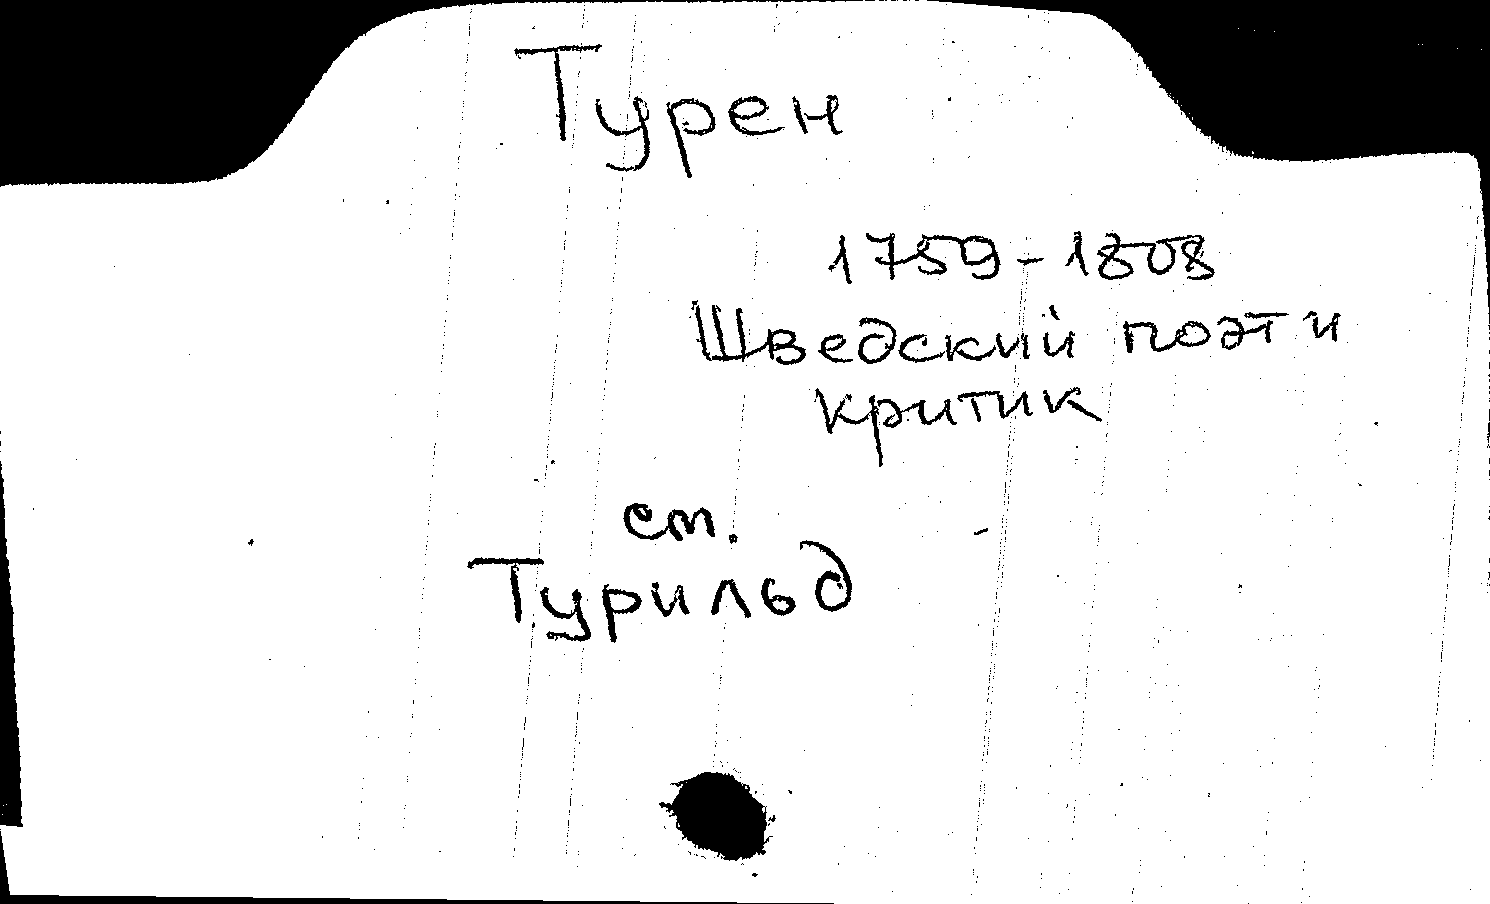 Турен
1759-1808
Шведский поэт и
критик
см.
Турильд